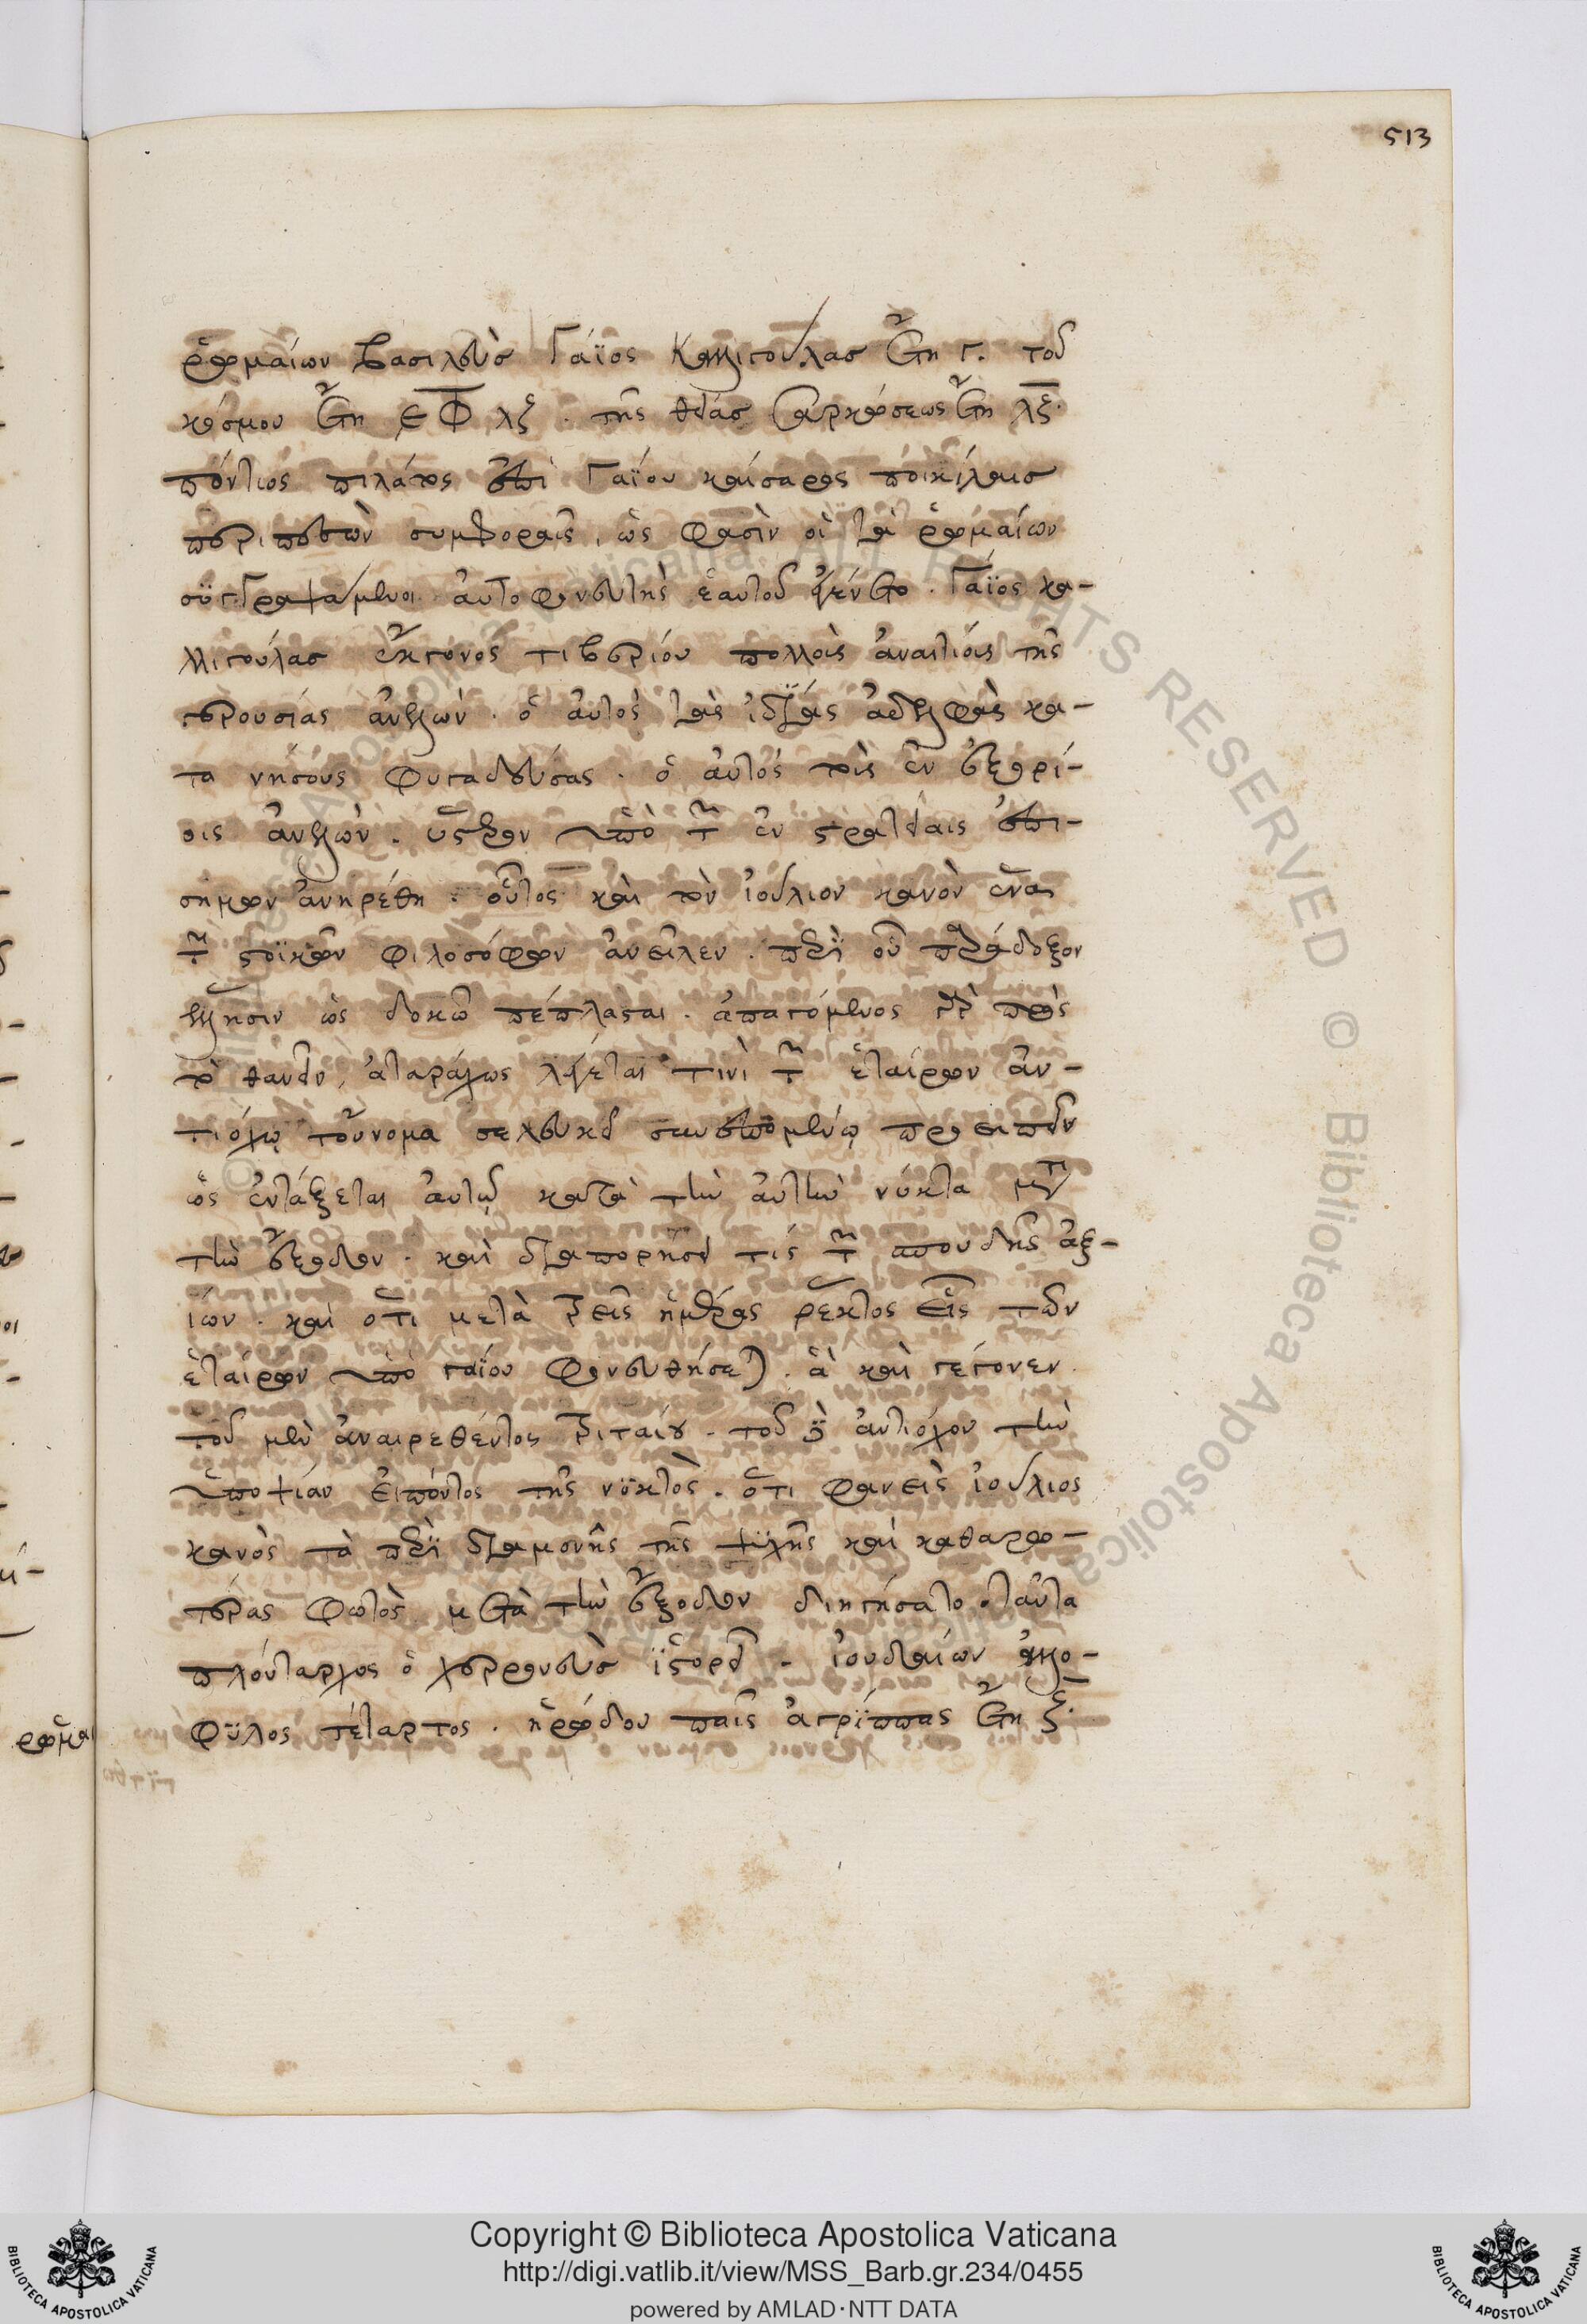 513
ῥωμαίων βασιλεὺσ Γάϊος Καλλιγούλασ ἔτη γ. τοῦ
κόσμου ἔτη εφλξ. τῆς θείασ σαρκώσεως ἔτη λξ.
πόντιος πιλάτος ἐπὶ Γαΐου καίσαρος ποικίλαισ
περιπεσὼν συμφοραῖς, ὥς φασὶν οἱ τὰ ῥωμαίων
συγγραψάμενοι αὐτοφονευτὴς ἑαυτοῦ ἐγένετο. Γάϊος κα-
λλιγούλασ ἔκγονος τιβερίου πολλοὺς ἀναιτίους τῆς
γερουσίας ἀνελών. ὁ αὐτὸς τὰς ἰδίας ἀδελφὰς κα-
τα νήσους φυγαδεύσας. ὁ αὐτὸς τοὺς ἐν ἐξορί-
οις ἀνελών. ὕστερον ὑπὸ τῶν ἐν στρατείαις ἐπι-
σήμων ἀνηρέθη. οὗτος καὶ τὸν ἰούλιον κανὸν ἕνα
τῶν στοϊκῶν φιλοσόφων ἀνεῖλεν. περὶ οὗ παράδοξον
ἕλλησιν ὡς δοκῶ πέπλασται. ἀπαγόμενος γὰρ πρὸς
τὸ θανεῖν, ἀταράχως λέγεται τινὶ τῶν ἑταίρων ἀν-
τιόχω τοὔνομα σελευκεῖ συνεπομένω προειπεῖν
ὡς ἐντάξεται αὐτῶ κατὰ τὴν αὐτὴν νύκτα μετὰ
τὴν ἔξοδον. καὶ διαπορήσει τις τῶν σπουδῆς ἀξ-
ίων. καὶ ὅτι μετὰ τρεῖς ἡμέρας ῥεκτος εἷς τῶν
ἑταίρων ὑπὸ γαΐου φονευθήσεται. ἃ καὶ γέγονεν
τοῦ μὲν ἀναιρεθέντος τριταίου. τοῦ δὲ ἀντιόχου τὴν
ὑποψίαν εἰπόντος τῆς νυκτὸς. ὅτι φανεὶς ἰούλιος
κανὸς τὰ περὶ διαμονῆς τῆς ψυχῆς καὶ καθαρω-
τέρας φωτὸς μετὰ τὴν ἔξοδον διηγήσατο. ταῦτα
πλούταρχος ὁ χερρονεὺσ ἱστορεῖ. ἰουδαίων ἀλλο-
φύλος τέταρτος. ἡρώδου παῖς ἀγρίππας ἔτη ζ.
Copyright © Biblioteca Apostolica Vaticana
http://digi.vatlib.it/view/MSS_Barb.gr.234/0455
powered by AMLAD·NTT DATA